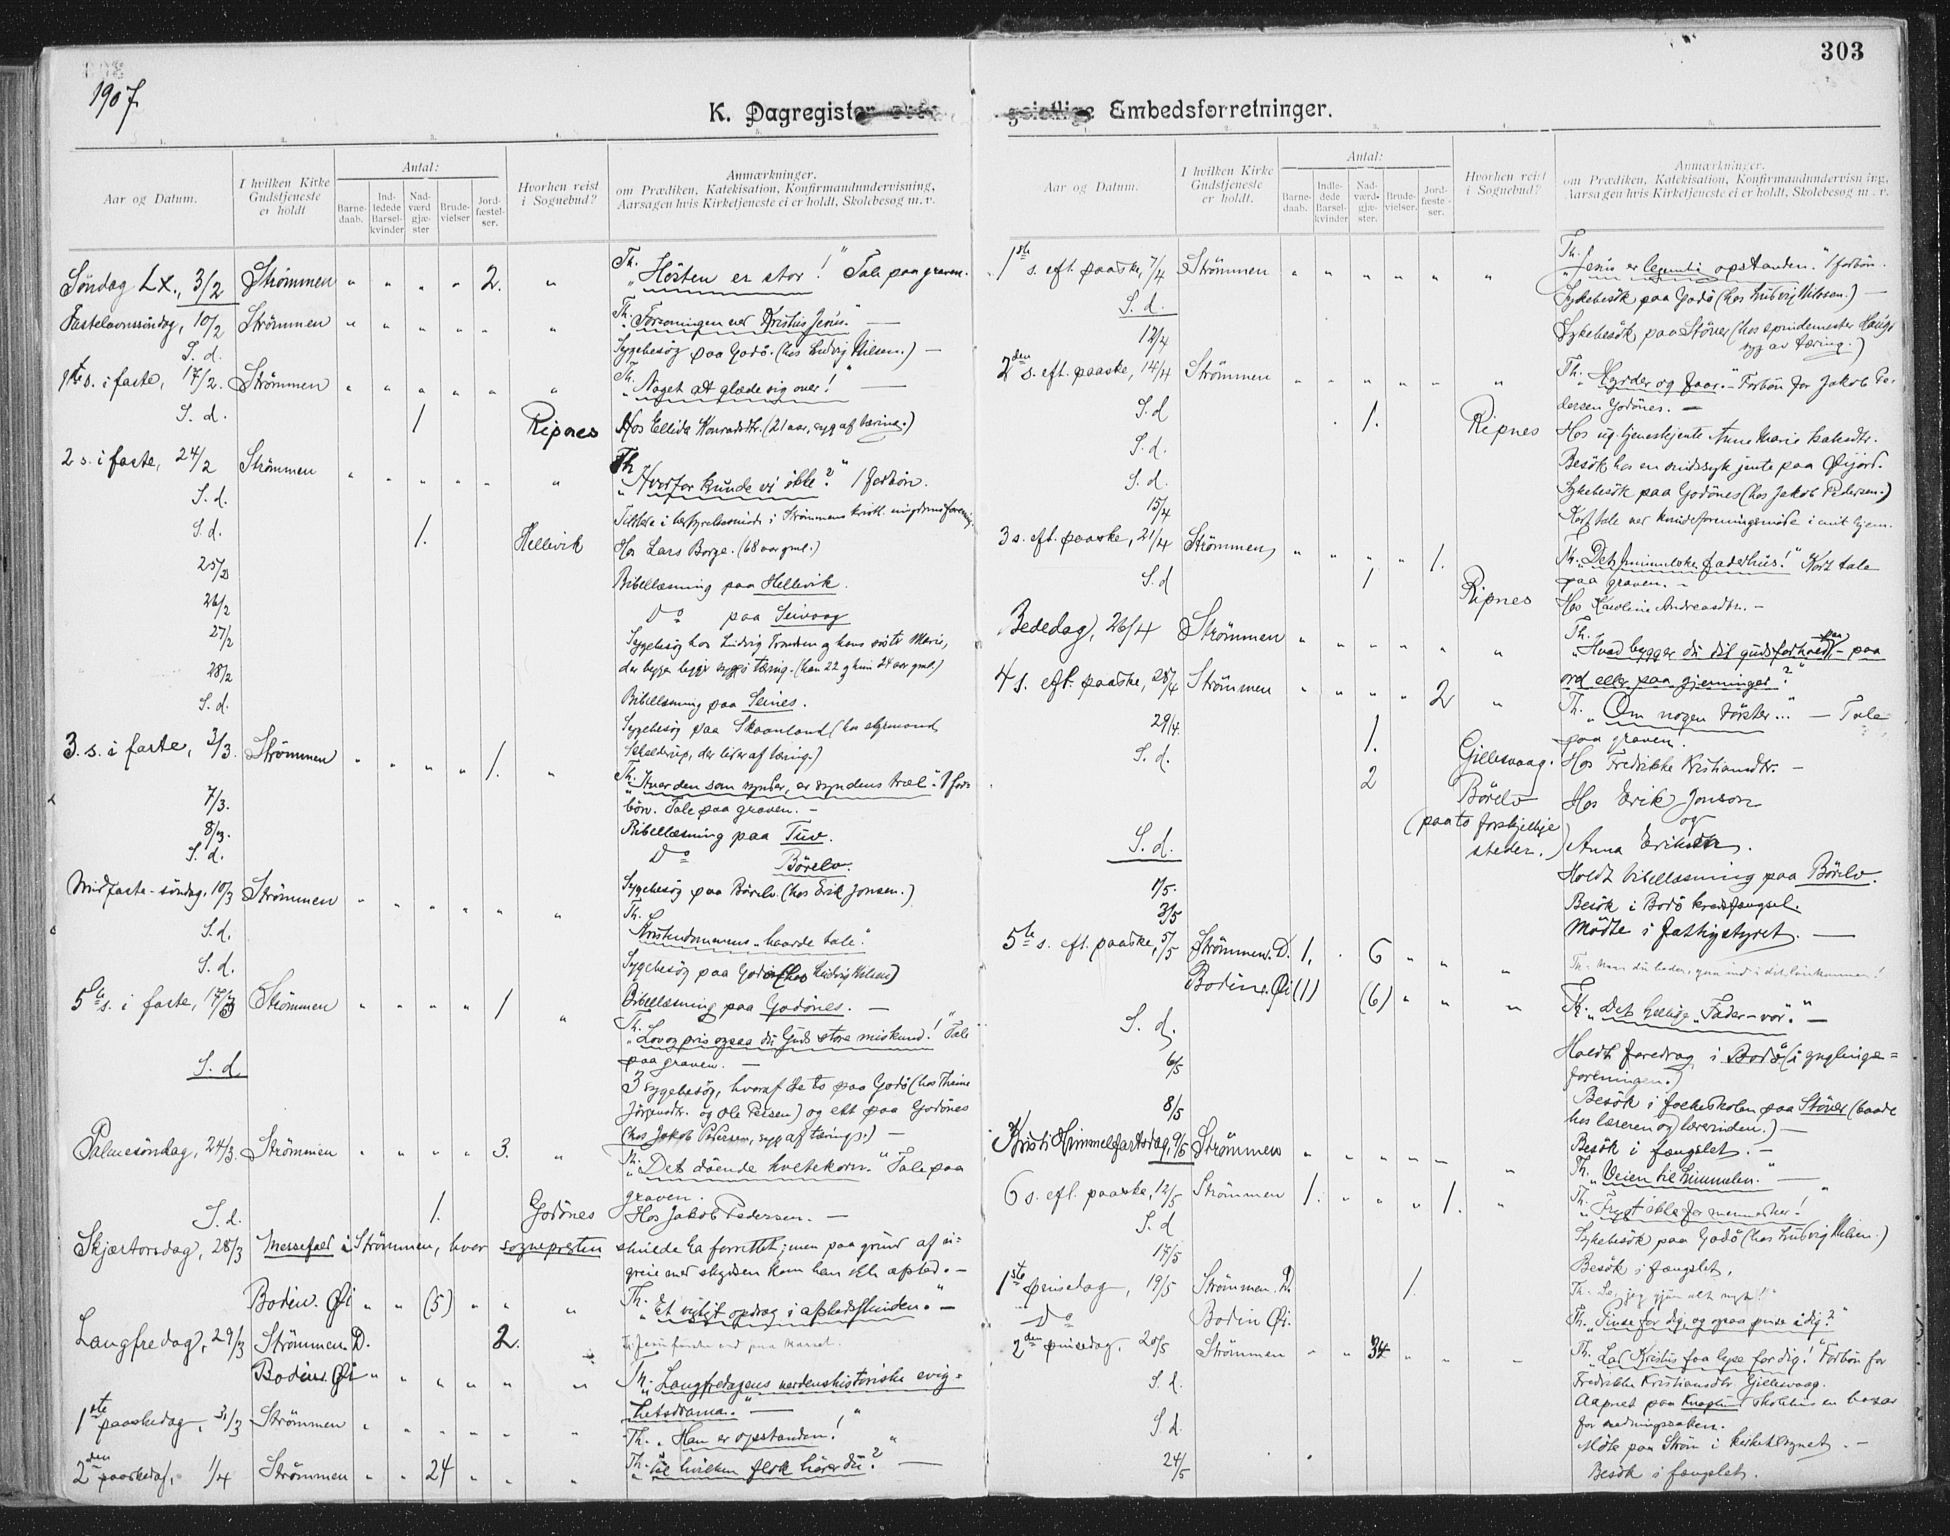 303
1907.
K. Dagregister
geistlige Embedsforretninger.
Aar og Datum.
I hvilken Kirke Gudstjeneste er holdt
Antal:
Barne-daab.
Ind-ledede Barsel-kvinder
Nad-værd gjæ-ster
Brude-vielser
Jord-fæstel-ser.
Hvorhen reist i Sognebud?
Anmærkninger.
om Prædiken, Katekisation, Konfirmandundervisning,
Aarsagen hvis Kirketjeneste ei er holdt, Skolebesøg m. v.
Söndag LX., 3/2 Strömmen " " " " 2. " Th. "Hösten er stor!" Tale paa graven.
Fastelavnssöndag, 10/2 Strömmen " " " " " " Th. "Forsoningen ved Kristus Jesus." —
S. d. Sygebesög paa Godö. (hos Ludvig Nilsen.) —
1ste s. i faste, 17/2. Strömmen " " " " " " Th. "Noget at glæde sig over!" —
S. d. 1 Ripnes Hos Ellida Konradsdtr. (21 aar, syg af tæring.)
2 s. i faste, 24/2 Strömmen " " " " " " Th. "Hvorfor kunde vi ikke?" 1 forbön.
S. d. Tilstede i bestyrelsesmöde i Strömmens kristl. ungdomsforening.
S. d. 1. Hellevik Hos Lars Borge. (68 aar gml.)
25/2 Bibellæsning paa Hellevik.
26/2 Do paa Seivaag
27/2 Sygebesög hos Ludvig Tronsen og hans söster Marie,
der begge ligger syge i tæring. (han 22 og hun 24 aar gml.)
28/2 Bibellæsning paa Seines.
S. d. Sygebesög paa Skaanland (hos
Schelderup, der lider af tæring.)
3. s. i faste, 3/3. Strömmen " " " " 1. " Th. "Hver den som synder, er syndens træl". 1 for-
bön. Tale paa graven. —
7/3. Bibellæsning paa Tuv.
8/3. Do Börelv.
S. d. Sygebesög paa Börelv. (hos Erik Jonsen.)
Midfaste-söndag, 10/3 Strömmen " " " " " " Th.
Kristendommens "haarde tale."
S. d. Sygebesög paa Godö (hos Ludvig Nilsen)
S. d. Bibellæsning paa Godönes. —
5te s. i faste, 17/3 Strömmen " " " " 1 " Th. "Lov og pris ogsaa du Guds store miskund!" Tale
paa graven. —
S. d. 3 sygebesög, hvoraf de to paa Godö (hos Thrine
Jörgensdtr. og Ole Persen) og ett paa Godönes
(hos Jakob Pedersen, syg af tæring.) —
Palmesöndag, 24/3. Strömmen " " " " 3. " Th. "Det döende hvetekorn." Tale paa
graven.
S. d. 1. Godönes Hos Jakob Pedersen. —
Skjærtorsdag, 28/3 Messefald i Strömmen, hvor sognepresten skulde ha forrettet; men paa grund af u-
greie med skydsen kom han ikke afsted. —
Bodin. Öi " " (5) " " " Th. "Et vigtigt opdrag i afskedsstunden." —
Langfredag, 29/3 Strömmen. D. 2.
Bodin. Öi " " " " " " Th. "Langfredagens verdenshistoriske evig-
hetsdrama." —
1ste paaskedag, 31/3 Strömmen " " " " " " Th. "Han er opstanden!"
2den paaskedag, 1/4 Strömmen " " 24 " " " Th. "Til hvilken flok hörer du?" —
Aar og Datum.
I hvilken Kirke Gudstjeneste er holdt.
Antal:
Barne-daab.
Indle-dede Barsel-kvinder
Nad-værd-gjæ-ster.
Brude-vielser.
Jord-fæstel-ser.
Hvorhen reist i Sognebud?
Anmærkninger.
om Prædiken, Katekisation, Konfirmandundervisning,
Aarsagen hvis Kirketjeneste ei er holdt, Skolebesøg m. v.
1ste s. eft. paaske, 7/4 Strömmen " " " " " " Th. "Jesus er legemlig opstanden." 1 forbön.
S. d. Sykebesök paa Godö (hos Ludvig Nilssen.) —
12/4 Sykebesök paa Stöver (hos spindemester Haugs
syg av tæring.)
2den s. eft. paaske, 14/4 Strömmen " " " " " " Th. "Hyrder og faar." — Forbön for Jakob Pe-
dersen Godönes. —
S. d 1. Ripnes Hos ug. tjenestjente Anne Marie Isaksdtr.
S. d. Besök hos en sindssyk jente paa Öijord.
S. d. Sykebesök paa Godönes (hos Jakob Pedersen.)
15/4 Kort tale ved kvindeforeningsmöte i mit hjem.
3 s. eft. paaske, 21/4 Strömmen " " " " 1. Th. "Det himmelske faderhus!" Kort tale
paa graven. —
S. d 1 Ripnes Hos Karoline Andreasdtr. —
Bededag, 26/4 Strömmen " " " " " " Th.
"Hvad bygger du dit gudsforhold paa, — paa
ord eller paa gjerninger?"
4 s. eft. paaske, 28/4 Strömmen " " " " 2 " Th. "Om nogen törster..." — Tale
paa graven.
29/4. 1. Gillesvaag. Hos Fredrikke Kristiansdtr. —
S. d. 2 Börelv Hos Erik Jonson
(paa to forskjellige og
steder.) Anna Eriksdtr.
S. d. Holdt bibellæsning paa Börelv.
1/5. Besök i Bodö kredsfængsel.
3/5 Mödte i fattigstyret. —
5te s. eft. paaske, 5/5 Strömmen. D. 1. . 6 " " " Th. Naar du beder, gaa ind i dit lönkammer!
Bodin. Öi (1) (6) " " " Th. "Det hellige "Fader-vor"." —
S. d. Holdt foredrag i Bodö (i ynglinge-
foreningen.)
6/5 Besök i folkeskolen paa Stöver (baade
hos læreren og lærerinden.) —
8/5 Besök i fængslet. —
Kristi Himmelfartsdag, 9/5 Strömmen " " " " " " Th. "Veien til himmelen." —
6 s. eft. paaske, 12/5 Strömmen 1. " " " 1. " Th. "Frygt ikke for mennesker!"
S. d Sykebesök paa Godö (hos Ludvig Nilsen.)
17/5 Besök i fængslet.
1ste pinsedag, 19/5 Strömmen. D. 1. Th. Se, jeg gjör alt nyt!
Do Bodin Öi. Th. "Pinse for dig, og ogsaa pinse i dig?"
2den pinsedag, 20/5 Strömmen " " 34 " " " Th. "Lad Kristus faa for dig!" Forbön for
Fredrikke Kristiansdtr. Gillesvaag.
S. d. Aapnet paa skolehus en basar
for
S. d. Möte paa Ström i kirketilsynet. —
24/5 Besök i fængslet.